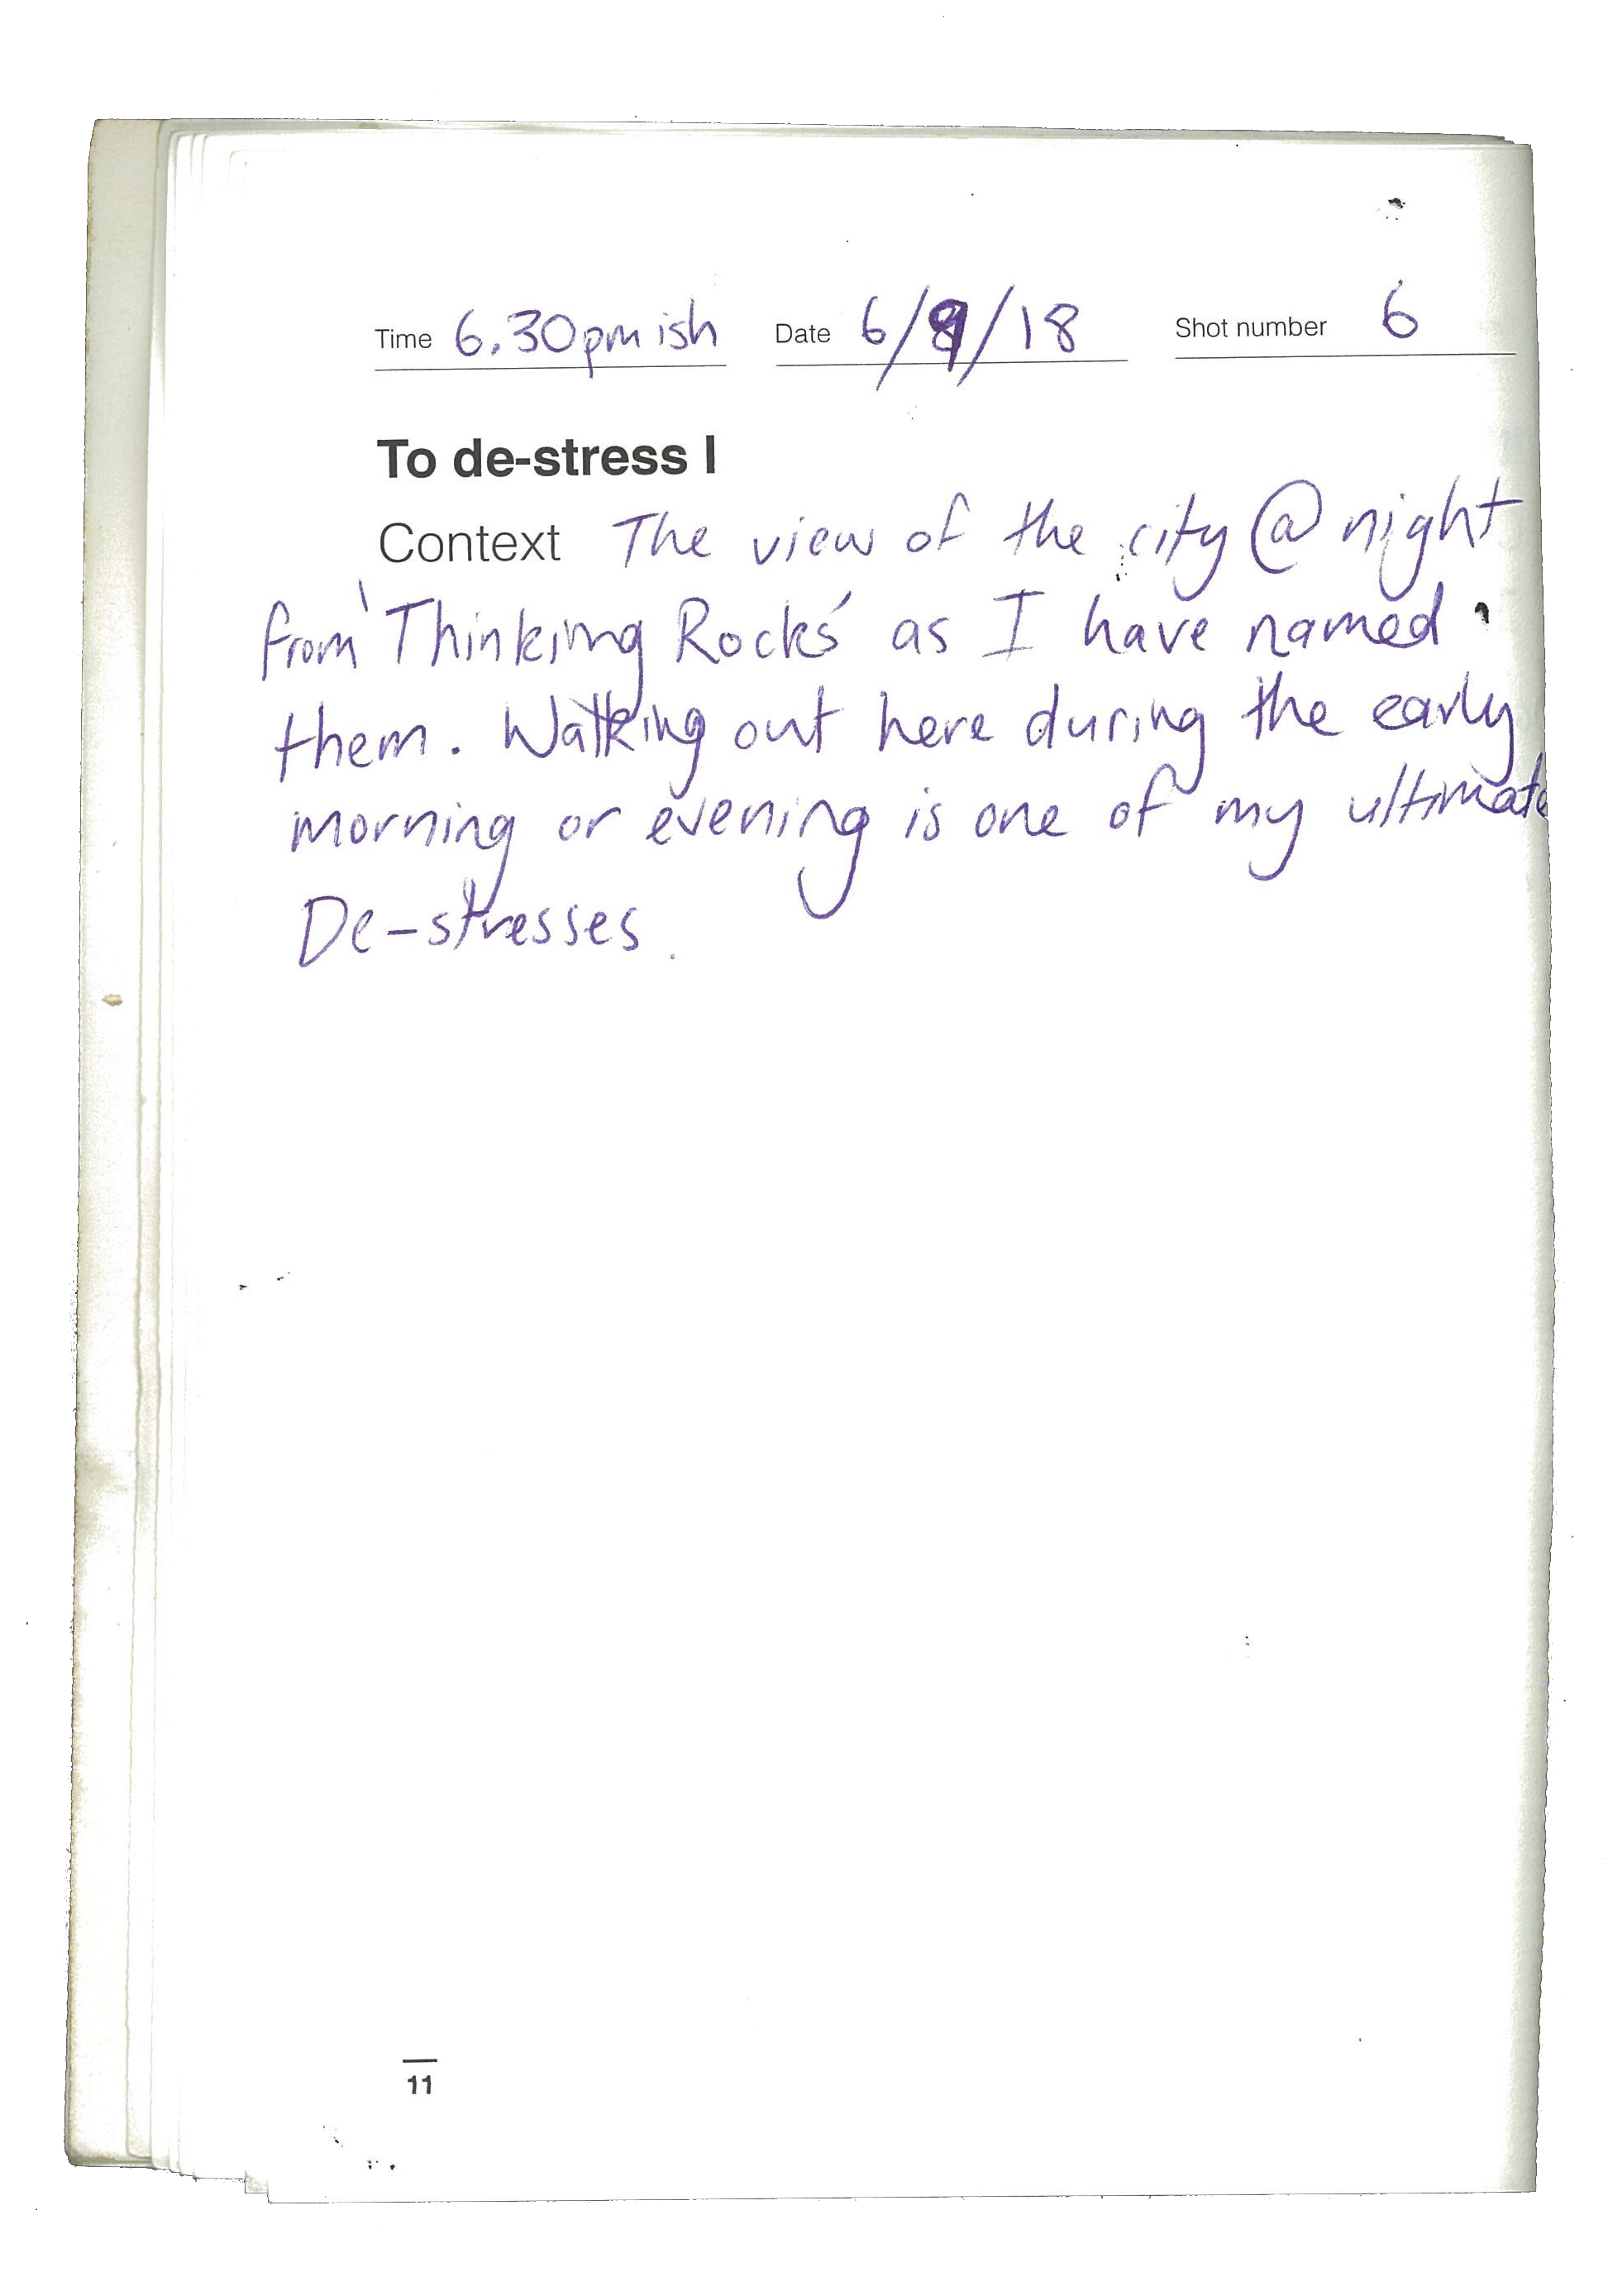 Time 6.30pm ish Date 6/9/18 Shot number 6
To de-stress I
Context The view of the city @ night
from 'Thinking Rocks' as I have named
them. Walking out here during the early
morning or evening is one of my ultimate
De-stresses.
11